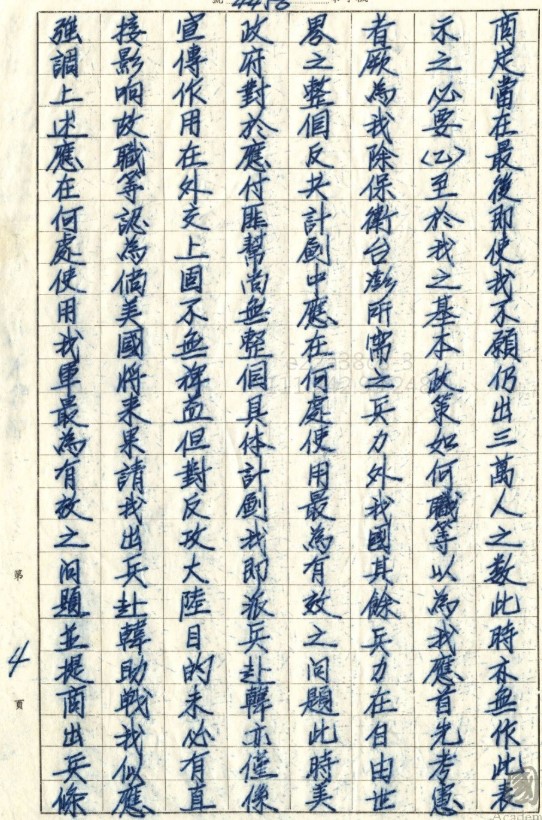 商定當在最後即使我不願仍出三萬人之數此時亦無作此表
示之必要(乙)至於我之基本政策如何職等以為我應首先考慮
者厥為我除保衛台澎所需之兵力外我國其餘兵力在自由世
界之整個反共計劃中應在何處使用最為有效之问題此時美
政府對於應付匪幫尚無整個具体計劃我即派兵赴韓亦僅係
宣傳作用在外交上固不無裨益但對反攻大陸目的未必有直
接影响故職等認為倘美國將来果請我出兵赴韓助戰我似應
強調上述應在何處使用我軍最為有效之问題並提商出兵條
第 4 頁
Academ